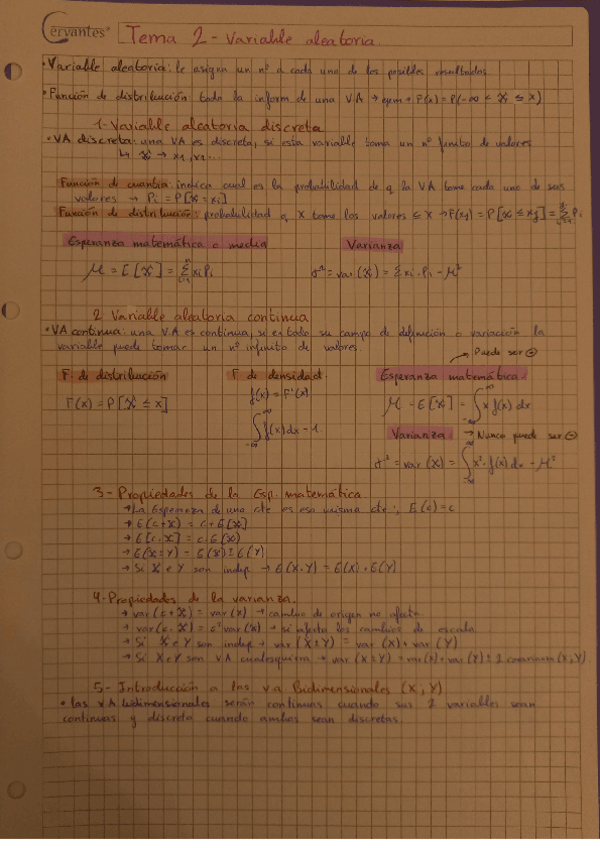 Cervantes
Tema 2 - Variable aleatoria
• Variable aleatoria: le asigna un nº a cada uno de los posibles resultados.
• Función de distribución toda la inform de una VA → F(x) = P(-∞ < X ≤ x)
1- Variable aleatoria discreta
• VA discreta: una VA es discreta, si esta variable toma un nº finito de valores
↳ X → x₁, x₂...
Función de cuantía: indica cual es la probabilidad de q la VA tome cada uno de sus
valores → Pi = P[X = xi]
Función de distribución: probabilidad q X tome los valores ≤ X → F(xj) = P[X ≤ xj] = Σ Pi
Esperanza matemática o media Varianza
μ = E[X] = Σ xi Pi σ² = var (X) = Σ xi · Pi - μ²
2 Variable aleatoria continua
• VA continua: una VA es continua, si en todo su campo de definición o variación la
variable puede tomar un nº infinito de valores.
→ Puede ser ⊖
F. de distribución F de densidad Esperanza matemática
F(x) = P[X ≤ x] f(x) = F'(x) μ - E[X] = ∫ x f(x) dx
∫ f(x) dx - 1. Varianza → Nunca puede ser ⊖
σ² = var (X) = ∫ x² · f(x) dx - μ²
3- Propiedades de la Esp. matemática
→ La Esperanza de una cte es esa misma cte:, E(c) = c
→ E(c+X) = c + E[X]
→ E[c·X] = c·E(X)
→ E(X±Y) = E(X) ± E(Y)
→ Si X e Y son indep → E(X·Y) = E(X) · E(Y)
4- Propiedades de la varianza.
→ var (c+X) = var (X) → cambio de origen no afecta
→ var (c·X) = c² var (X) → si afecta los cambios de escala
→ Si X e Y son indep → var (X±Y) = var (X) + var (Y)
→ Si X e Y son VA cualesquiera → var (X±Y) = var (X) + var (Y) ± 2 covarianza (X,Y)
5- Introducción a las va Bidimensionales (X,Y)
• las VA bidimensionales serán continuas cuando sus 2 variables sean
continuas y discreta cuando ambas sean discretas.